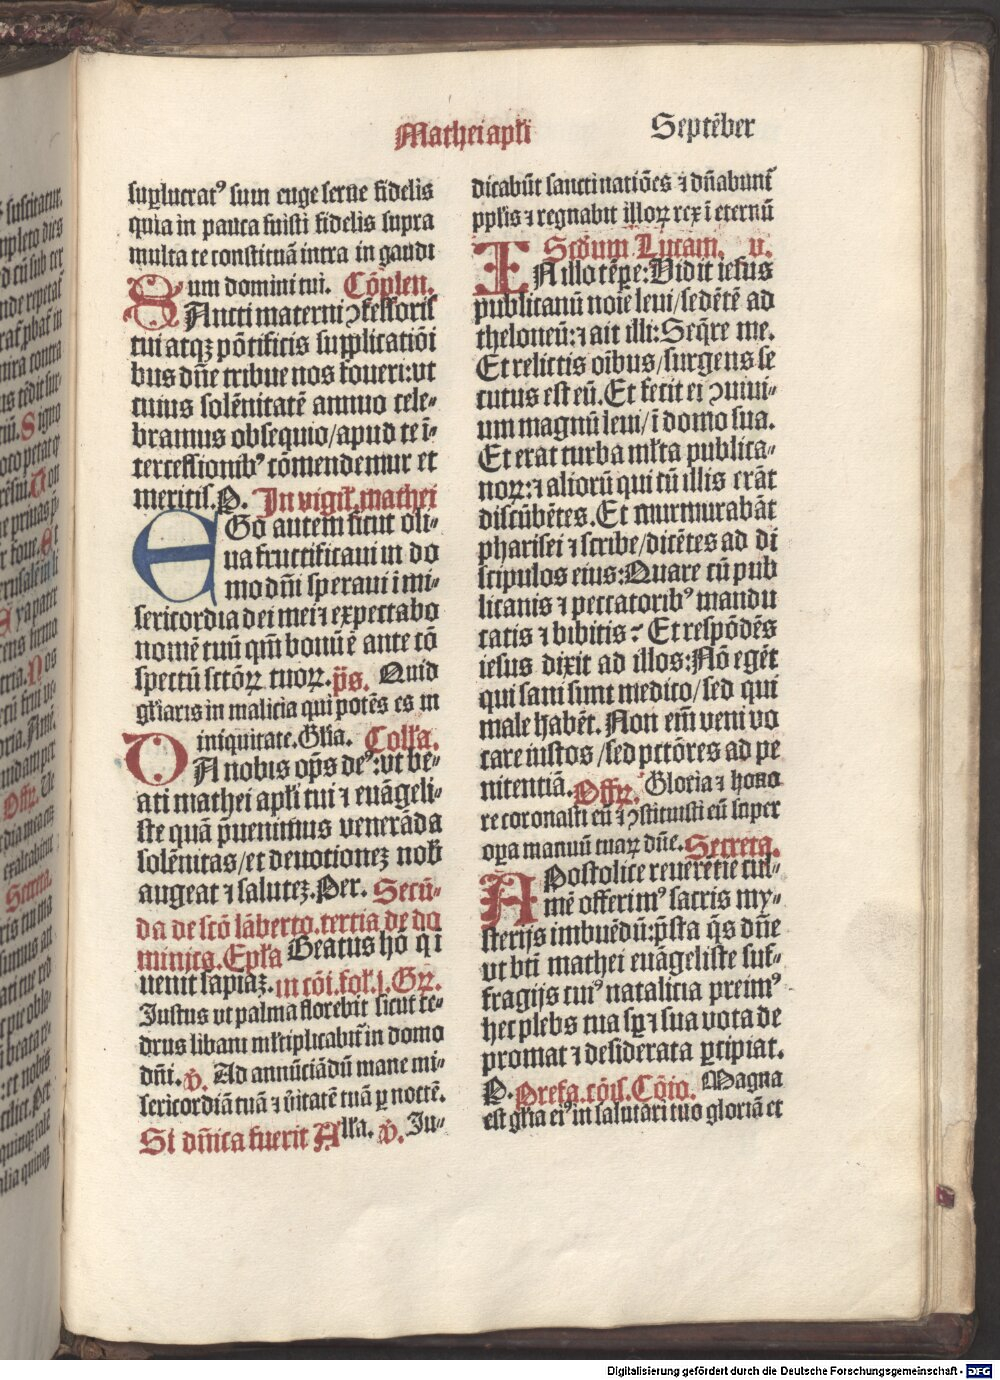 Mathei apłi
Septēber
suꝑlucratꝰ sum euge serue fidelis
quia in pauca fuisti fidelis supra
multa te constituā intra in gaudi
um domini tui. Cōplen.
SAncti materni ꝯfessoris
tui atqꝫ pōtificis supplicatiōi
bus dn̄e tribue nos foueri:ut
cuius solēnitatē annuo cele⸗
bramus obsequio/apud te ī⸗
tercessionibꝰ cōmendemur et
meritis.P. In vigił.mathei
EGo autem sicut oli⸗
ua fructificaui in do
mo dn̄i speraui ī mi⸗
sericordia dei mei ⁊ expectabo
nomē tuū qm̄ bonū ē ante cō
spectū sctōꝝ tuoꝝ.p̄s. Quid
głiaris in malicia qui potēs es in
iniquitate.Głia. Colła.
DA nobis op̄s deꝰ:vt be⸗
ati mathei apłi tui ⁊ euāgeli⸗
ste quā p̄uenimus venerāda
solēnitas/et deuotioneꝫ nob̄
augeat ⁊ saluteꝫ.Per. Secū⸗
da de scō lāberto.tertia de do
minica.Epła Beatus hō q i
uenit sapiāꝫ.in cōi.fol.j.Gr̄.
Justus vt palma florebit sicut ce⸗
drus libani młtiplicabit̄ in domo
dn̄i.v̄. Ad annūciādū mane mi⸗
sericordiā tuā ⁊ v̄itatē tuā ꝑ noctē.
Si dn̄ica fuerit Ałła. v̄. Ju⸗
dicabūt sancti natiōes ⁊ dn̄abunt̄
pplis ⁊ regnabit illoꝝ rex ī eternū
Scd̄um Lucam. v.
IN illo tēpe:Vidit iesus
publicanū noīe leui/sedētē ad
theloneū:⁊ ait illi:Seq̄re me.
Et relictis oībus/surgens se
cutus est eū.Et fecit ei ꝯuiui⸗
um magnū leui/ī domo sua.
Et erat turba młta publica⸗
noꝝ:⁊ alioꝛū qui cū illis erāt
discūbētes.Et murmurabāt
pharisei ⁊ scribe/dicētes ad di
scipulos eius:Quare cū pub
licanis ⁊ peccatoribꝰ mandu
catis ⁊ bibitis? Et respōdēs
iesus dixit ad illos:Nō egēt
qui sani sunt medico/sed qui
male habēt.Non em̄ veni vo
care iustos/sed pctōres ad pe
nitentiā.Offꝝ. Gloria ⁊ hono
re coronasti eū ⁊ ꝯstituisti eū super
oꝑa manuū tuaꝝ dn̄e.Secreta.
APostolice reuerētie cul⸗
mē offerimꝰ sacris my⸗
sterijs imbuēdū:p̄sta q̄s dn̄e
vt bt̄i mathei euāgeliste suf⸗
fragijs cuiꝰ natalicia preimꝰ
hec plebs tua sꝑ ⁊ sua vota de
promat ⁊ desiderata ꝑcipiat.
P.Prefa.cōis.Cōio. Magna
est głia eiꝰ in salutari tuo gloriā et
Digitalisierung gefördert durch die Deutsche Forschungsgemeinschaft - DFG